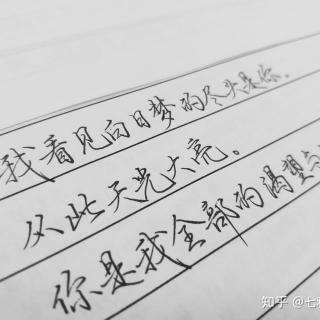 我看见白日梦的尽头是你。
从此天光大亮。
你是我全部的渴望与
知乎 @七